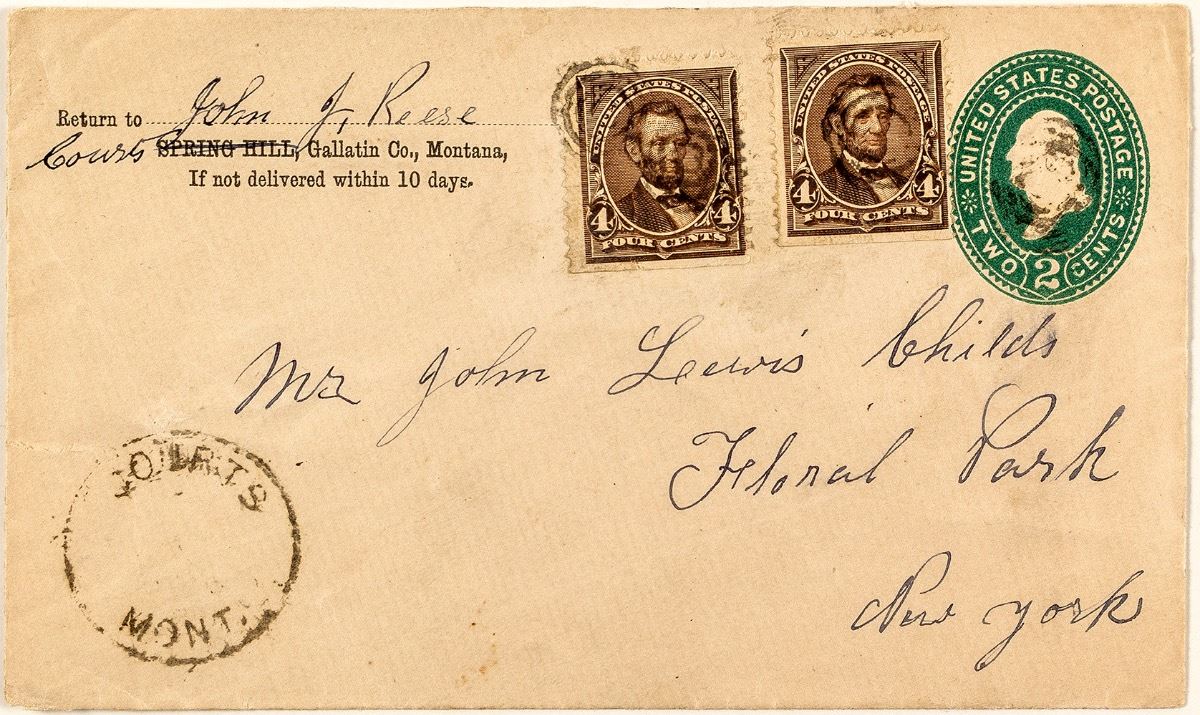 Return to John J, Reese
Courts SPRING HILL, Gallatin Co., Montana,
If not delivered within 10 days.
UNITED STATES POSTAGE
4 4
FOUR CENTS
UNITED STATES POSTAGE
4 4
FOUR CENTS
UNITED STATES POSTAGE
TWO 2 CENTS
Mr John Lewis Childs
Floral Park
New York
MONT.